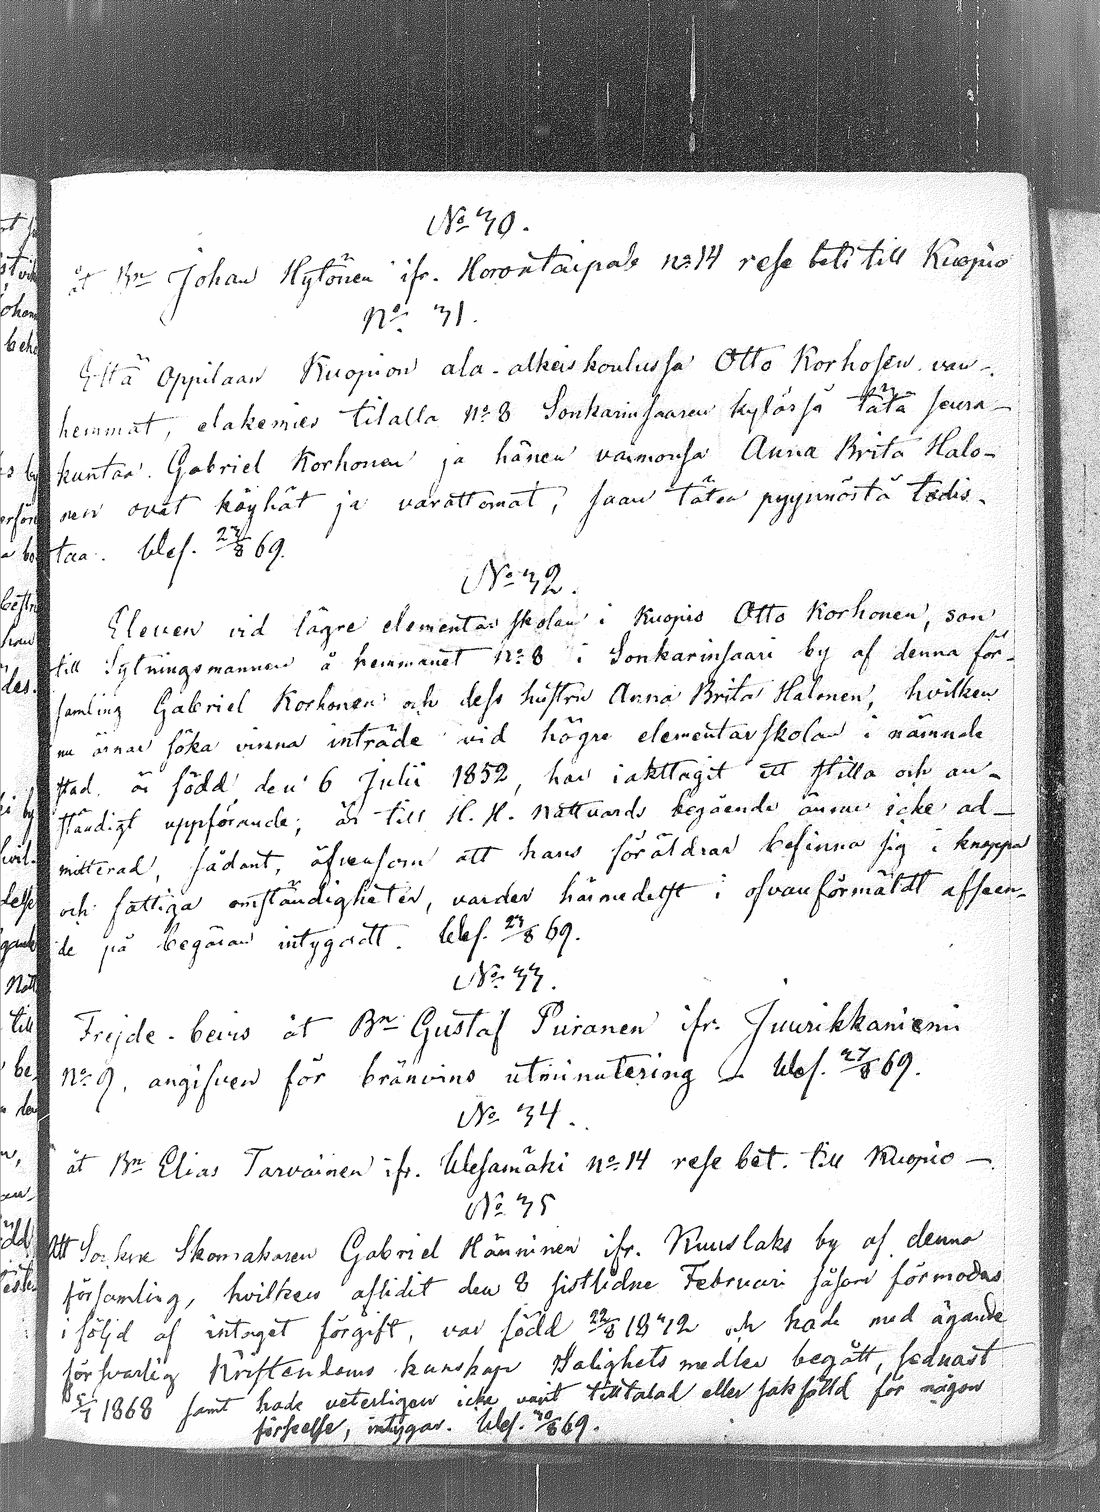 No 30.
åt Bn Johan Hytönen ifr. Horontaipale no 14 rese betis till Kuopio
No 31.
Että oppilaan Kuopion ala-alkeiskoulussa Otto Korhosen van-
hemmat, elakemies tilalla No 8 Sonkarinsaaren kylässä tätä seura-
kuntaa. Gabriel Korhonen ja hänen vaimonsa Anna Brita Halo-
nen ovat köyhät ja varattomat, saan täten pyynnöstä todis-
taa. Wes. 23/8 69.
No 32.
Eleven vid lägre elementar skolan i Kuopio Otto Korhonen, son
till Sytningsmannen å hemmanet No 8 i Sonkarinsaari by af denna för-
samling Gabriel Korhonen och dess hustru Anna Brita Halonen, hvilken
nu ärnar söka vinna inträde vid högre elementarskolan i nämnde
stad, är född den 6 Julii 1852, har iakttagit ett stilla och an-
ständigt uppförande; är till H. H. Nattvards begående ännu icke ad-
mitterad, sådant, äfvensom att hans föräldrar befinna sig i knappa
och fattiga omständigheter, varder härmedelst i ofvanförmäldt afseen-
de på begäran intygadt. Wes. 23/8 69.
No 33.
Frejde-bevis åt Bn Gustaf Puranen ifr. Juurikkaniemi
No 9, angifven för bränvins utminutering Wes. 27/8 69.
No 34.
åt Bn Elias Tarvainen ifr. Wesamäki No 14 rese bet. till Kuopio —
No 35
Att Socknе Skomakaren Gabriel Hänninen ifr. Kuuslaks by af denna
församling, hvilken aflidit den 8 sistlidne Februari såsom förmodas
i följd af intaget förgift, var född 22/8 1842 och hade med ägande
försvarlig Kristendoms kunskap Salighets medlen begått, sednast
5/7 1868 samt hade veterligen icke varit tilltalad eller sakfälld för någon
förseelse, intygar. Wes. 30/8 69.